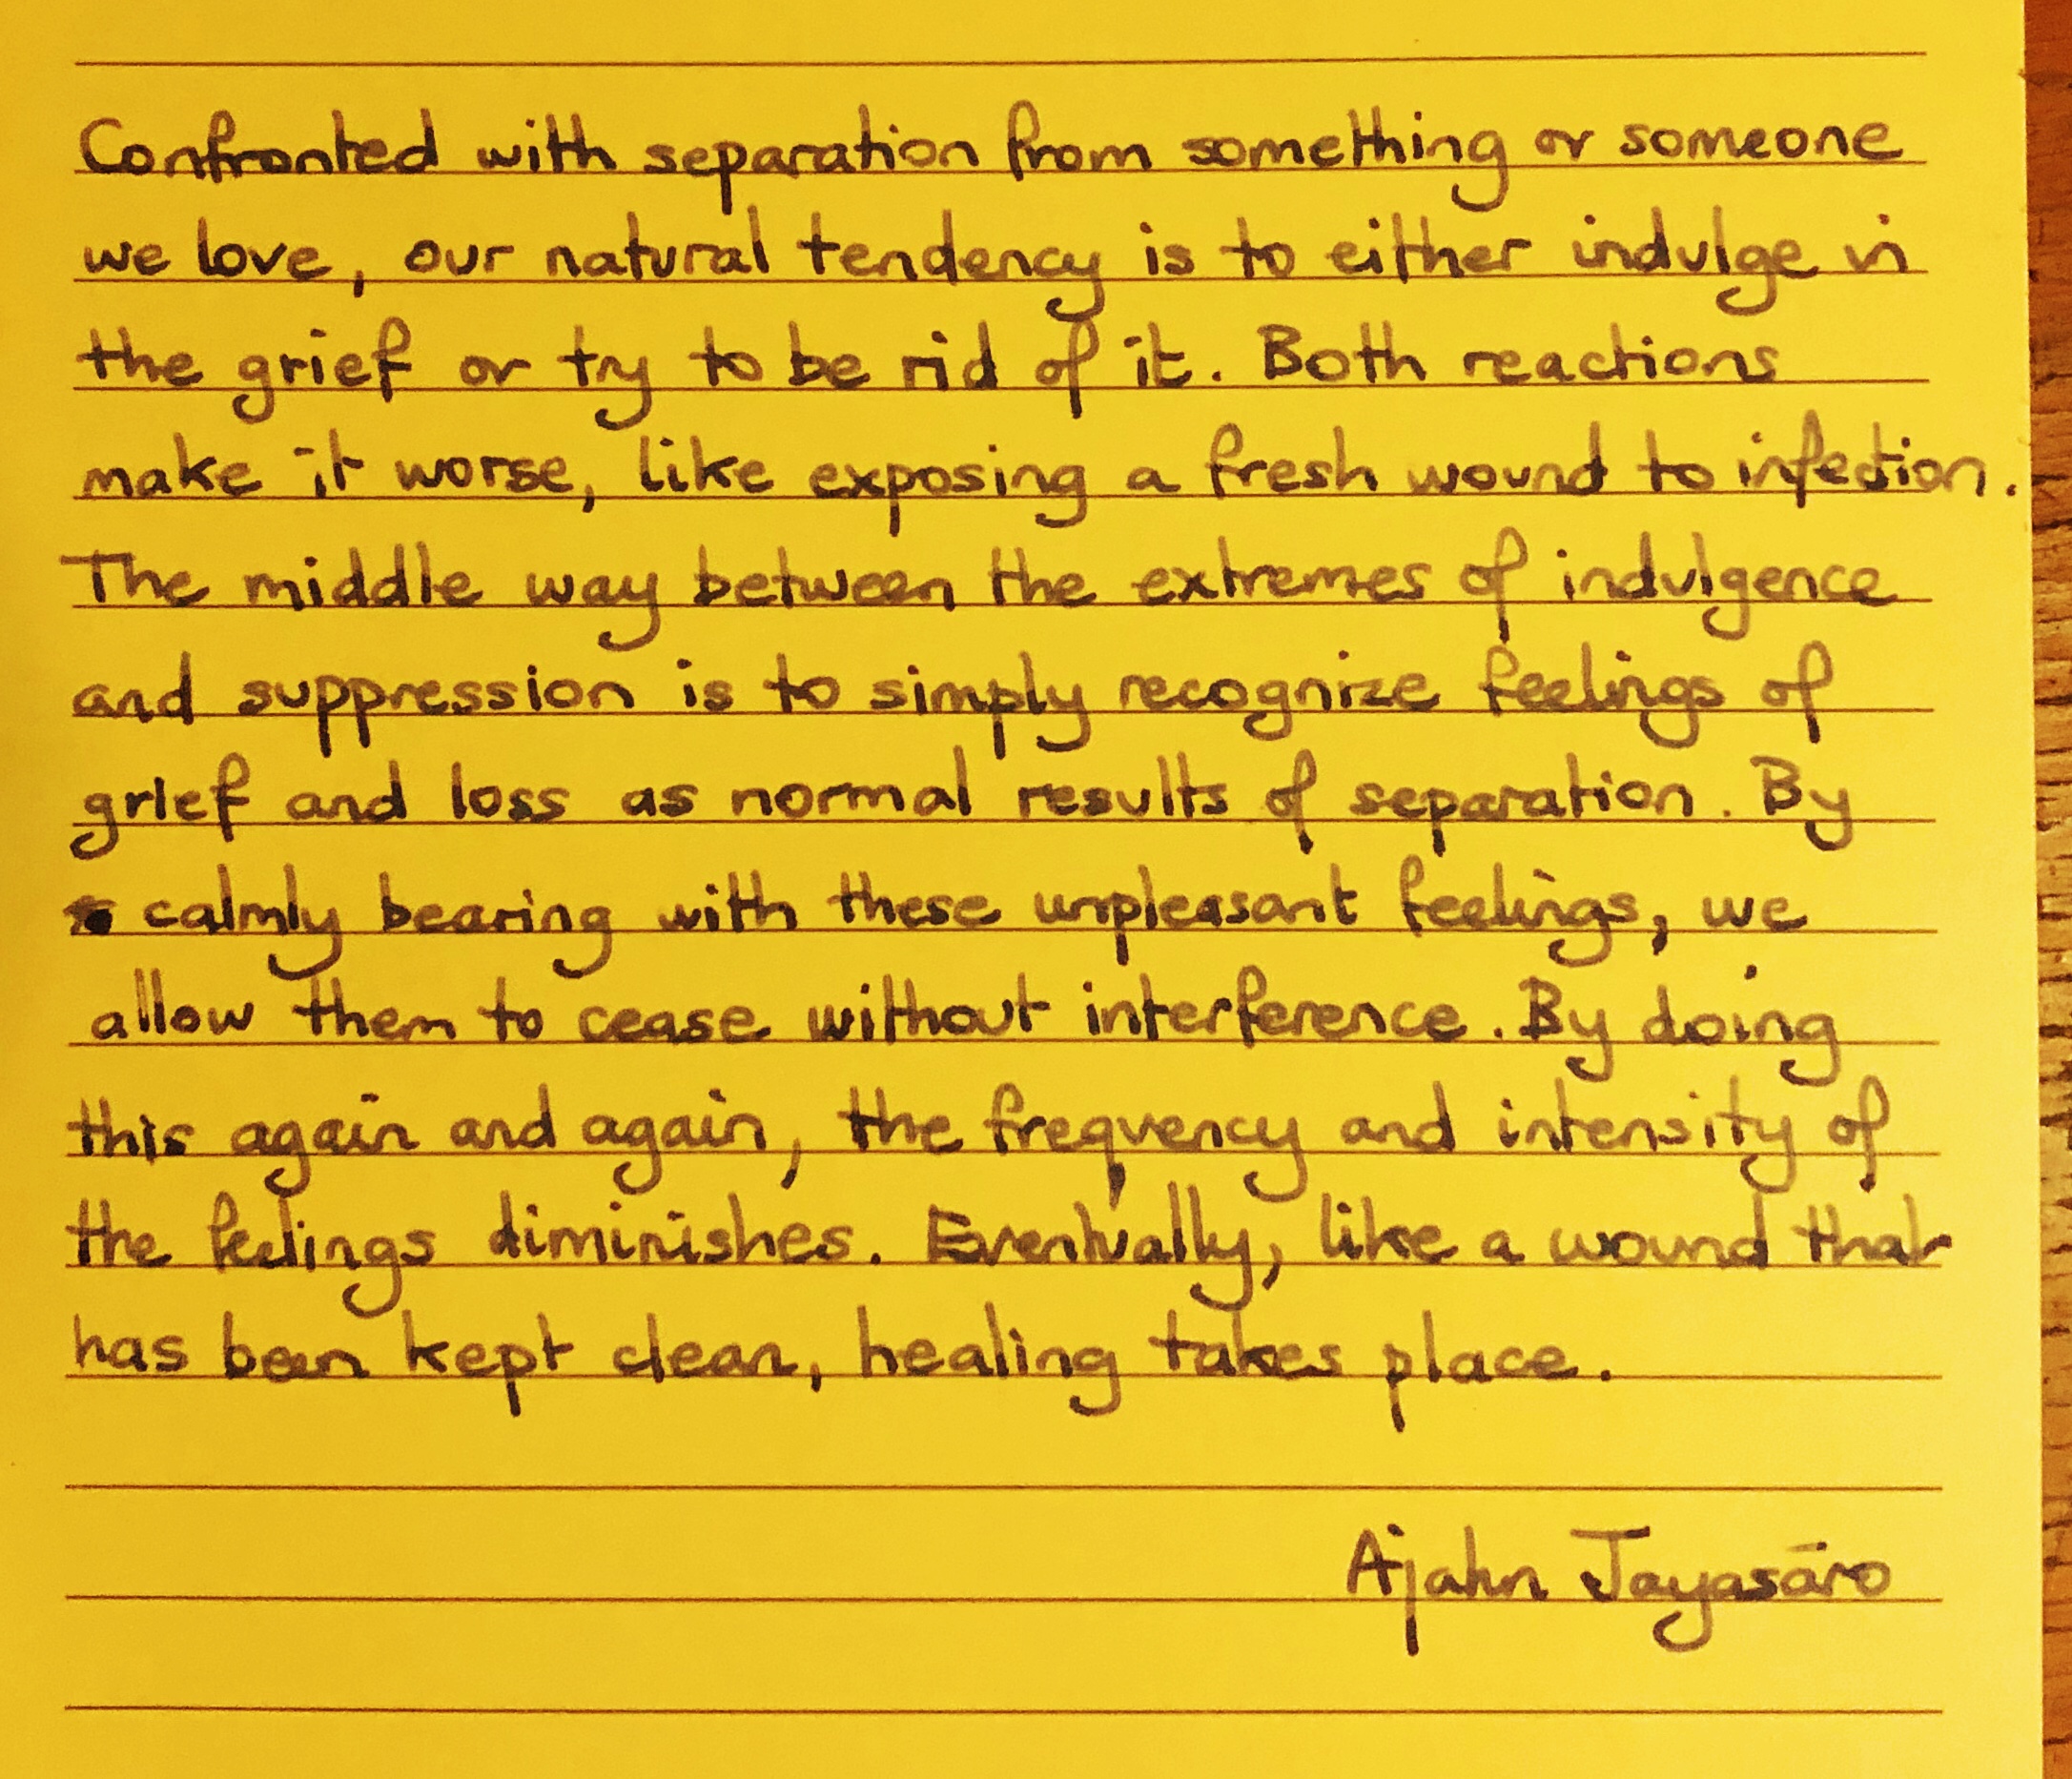 Confronted with separation from something or someone
we love, our natural tendency is to either indulge in
the grief or try to be rid of it. Both reactions
make it worse, like exposing a fresh wound to infection.
The middle way between the extremes of indulgence
and suppression is to simply recognize feelings of
grief and loss as normal results of separation. By
calmly bearing with these unpleasant feelings, we
allow them to cease without interference. By doing
this again and again, the frequency and intensity of
the feelings diminishes. Eventually, like a wound that
has been kept clean, healing takes place.
Ajahn Jayasāro